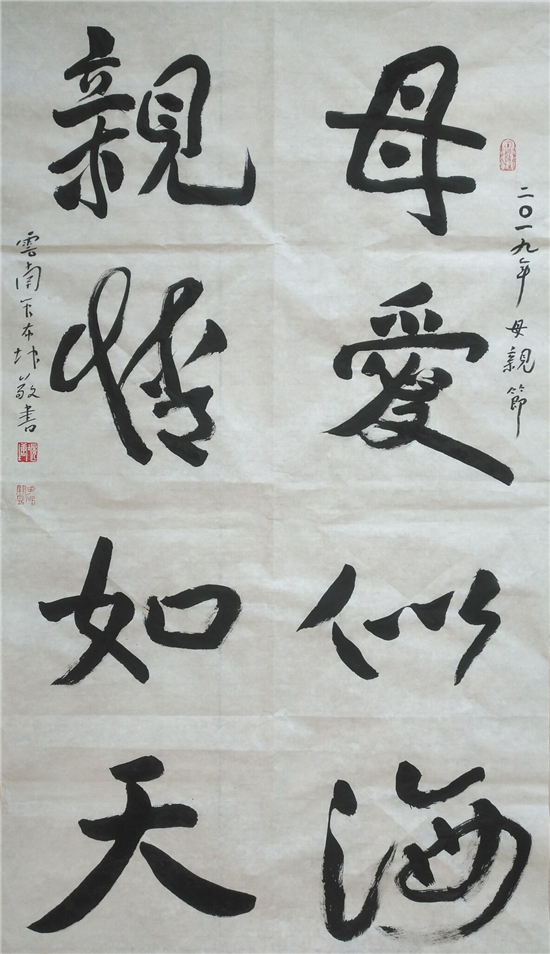 二〇一九年母親節
母愛似海
親情如天
雲南 敬書